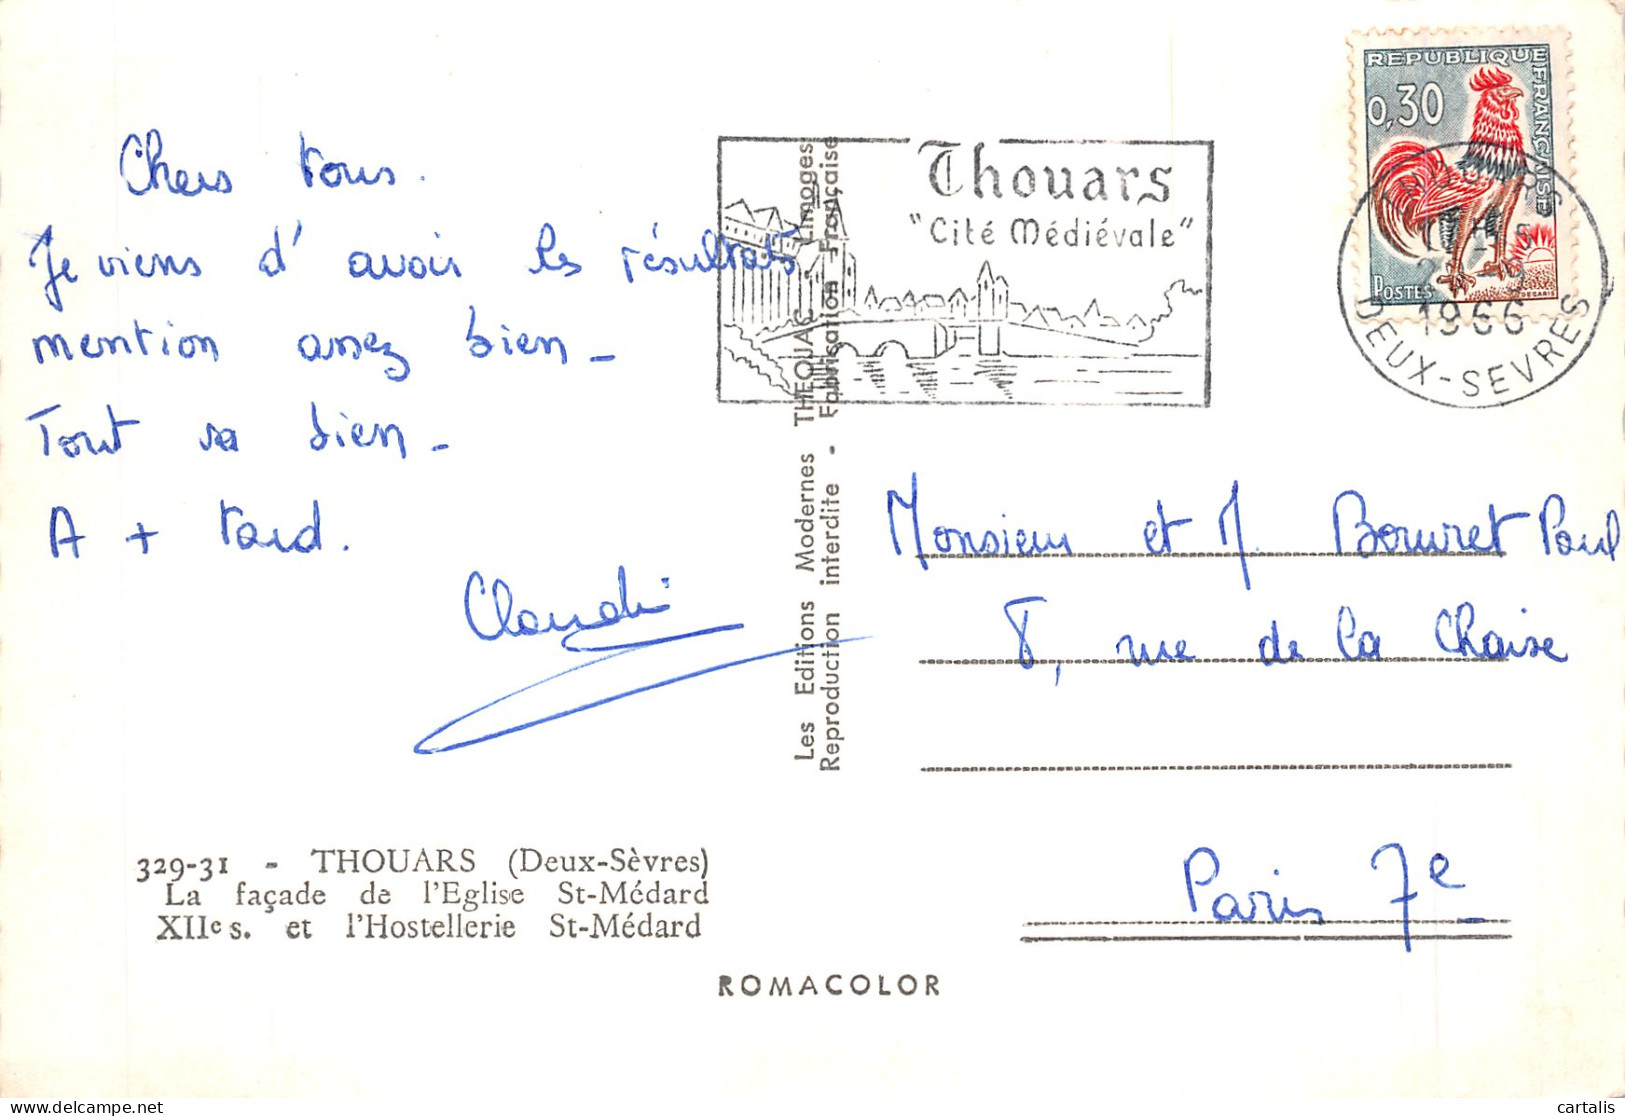 Chers tous.
Je viens d'avoir les résultats
mention assez bien –
Tout va bien –
A + tard.
REPUBLIQUE FRANÇAISE
0,30
POSTES
DECARIS
Thouars
"Cité Médiévale"
THOUARS
1966
DEUX-SEVRES
Les Editions Modernes THEOJAC - Limoges
Reproduction interdite - Fabrisation Française
Monsieur et M. Bouvret Paul
8, rue de la Chaise
Paris 7e
329-31 - THOUARS (Deux-Sèvres)
La façade de l'Eglise St-Médard
XIIe s. et l'Hostellerie St-Médard
ROMACOLOR
cartalis